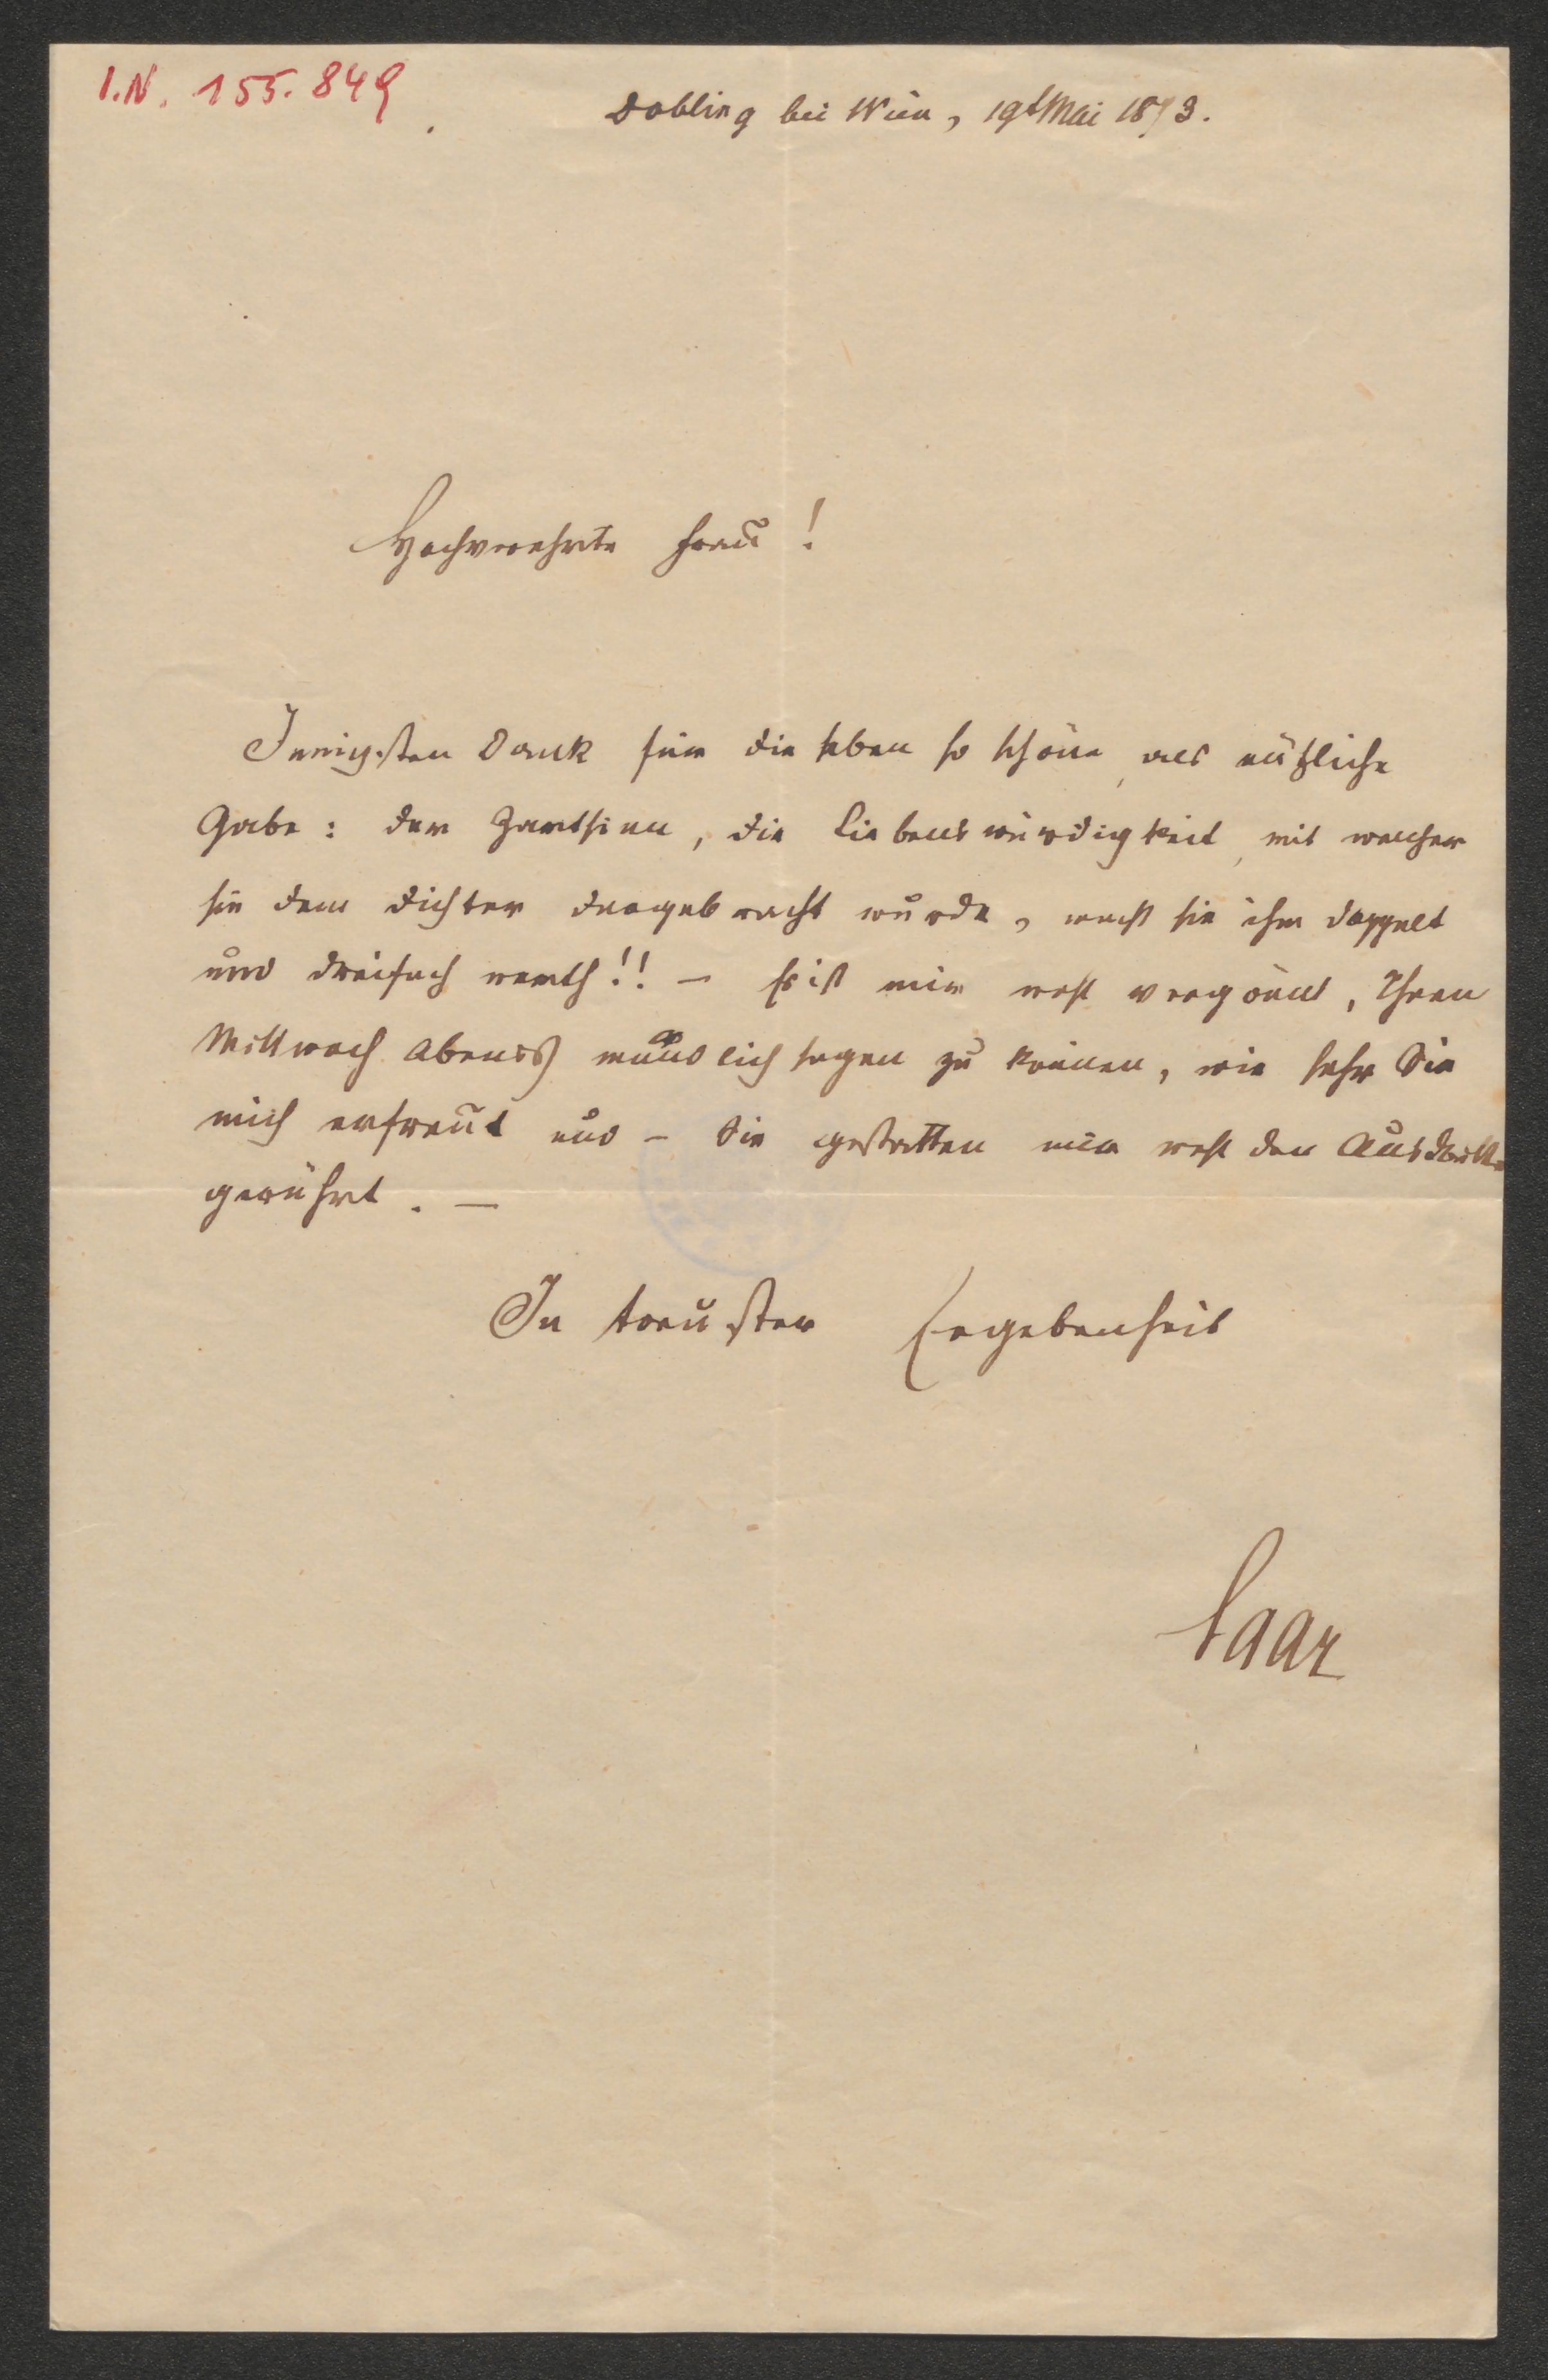 I.N. 155.849
Döbling bei Wien, 19t Mai 1873.
Hochverehrte Frau!
Innigsten Dank für die eben so schöne, als nützliche
Gabe: der Zartsinn, die Liebenswürdigkeit, mit welcher
sie dem Dichter dargebracht wurde, macht sie ihm doppelt
und dreifach werth!! – Es ist mir wohl vergönnt, Ihnen
Mittwoch Abends mündlich sagen zu können, wie sehr Sie
mich erfreut und – Sie gestatten mir wohl den Ausdruck
gerührt. –
In treuster Ergebenheit
Saar